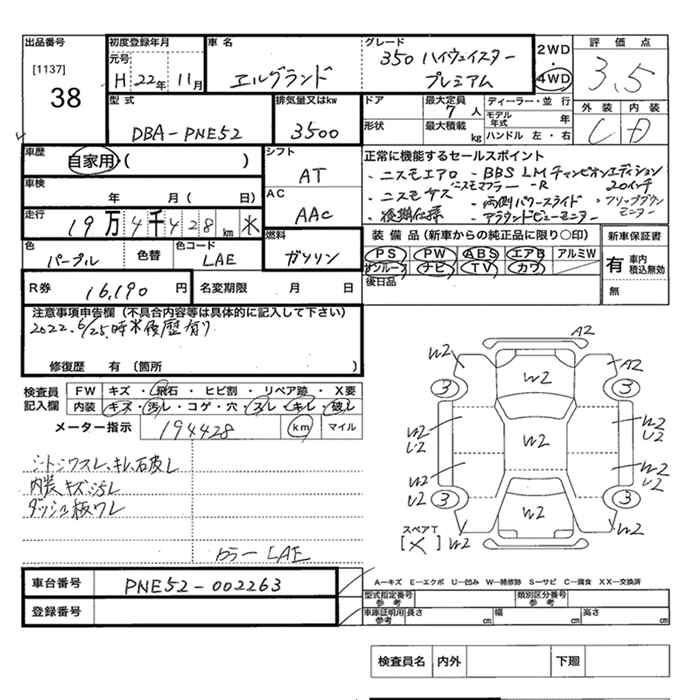 出品番号
[1137]
38
初度登録年月
元号
H 22年 11月
車名
エルグランド
グレード
350 ハイウェイスター
プレミアム
2WD
4WD
評価点
3.5
外装 内装
C D
型式
DBA-PNE52
排気量又はkw
3500
ドア
形状
最大定員
7人
最大積載
kg
ディーラー・並行
モデル年式 年
ハンドル 左・右
車歴
自家用・( )
車検
年 月 ( 日)
走行
19万4千428km
シフト
AT
AC
AAC
燃料
ガソリン
正常に機能するセールスポイント
・ニスモエアロ ・BBS LMチャンピオンエディション
20インチ
・ニスモマフラー-R
・両側パワースライド ・フリップダウンモニター
・後期仕様 ・アラウンドビューモニター
色
パープル
色替
色コード
LAE
装備品(新車からの純正品に限り〇印)
PS PW ABS エアB アルミW
サンルーフ ナビ TV カワ
後日品
新車保証書
有 車内積込無効
無
R券
16,190円
名変期限 月 日
注意事項申告欄(不具合内容等は具体的に記入して下さい)
2022.6/25時 歴有り
修復歴 有(箇所 )
検査員記入欄
FW キズ・飛石・ヒビ割・リペア跡・X要
内装 キズ・汚レ・コゲ・穴・スレ・キレ・破レ
メーター指示 194428 km マイル
シートシワスレ、キレ、破レ
内装キズ、汚レ
ダッシュ板ワレ
カラー LAE
A2
W2
W2
A2
3
3
W2
U2
W2
W2
U2
W2
U2
W2
U2
3
3
W2
スペアT
[×]
W2
W2
車台番号
PNE52-002263
登録番号
A-キズ E-エクボ U-凹み W-補修跡 S-サビ C-腐食 XX-交換済
型式指定番号
参考
類別区分番号
参考
車庫証明用
参考
長さ cm 幅 cm 高さ cm
検査員名 内外 下廻